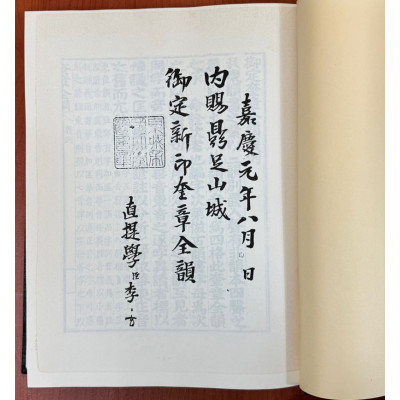 嘉慶元年八月 日
內賜鼎足山城
御定新印奎章全韻
直提學臣李